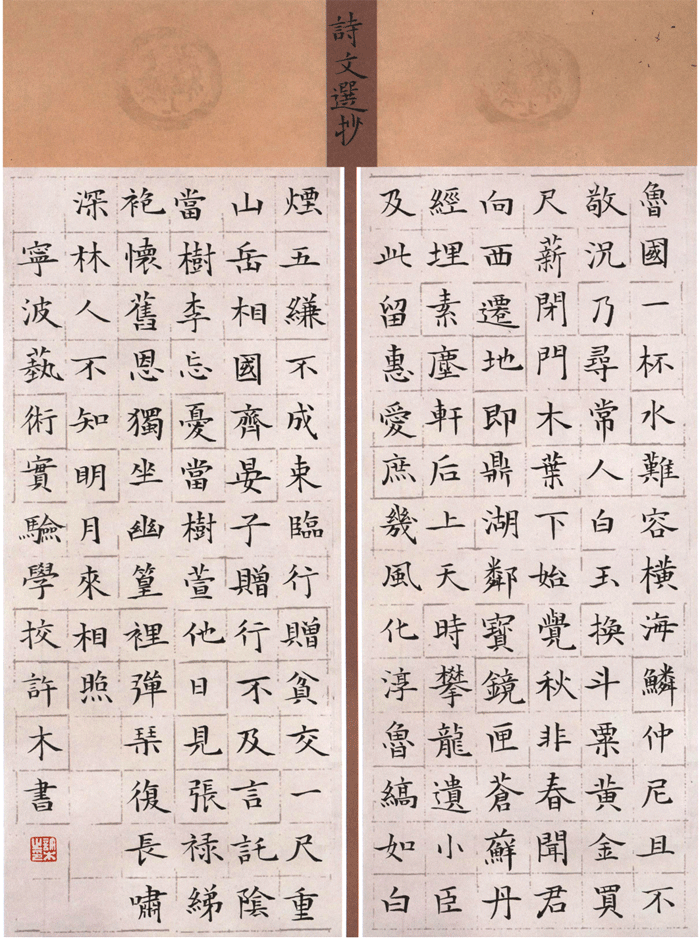 詩文選抄
魯國一杯水難容橫海鱗仲尼且不
敬況乃尋常人白玉換斗粟黃金買
尺薪閉門木葉下始覺秋非春聞君
向西遷地即鼎湖鄰寶鏡匣蒼蘚丹
經埋素塵軒后上天時攀龍遺小臣
及此留惠愛庶幾風化淳魯縞如白
煙五縑不成束臨行贈貧交一尺重
山岳相國齊晏子贈行不及言託陰
當樹李忘憂當樹萱他日見張祿綈
袍懷舊恩獨坐幽篁裡彈琴復長嘯
深林人不知明月來相照
寧波藝術實驗學挍許木書